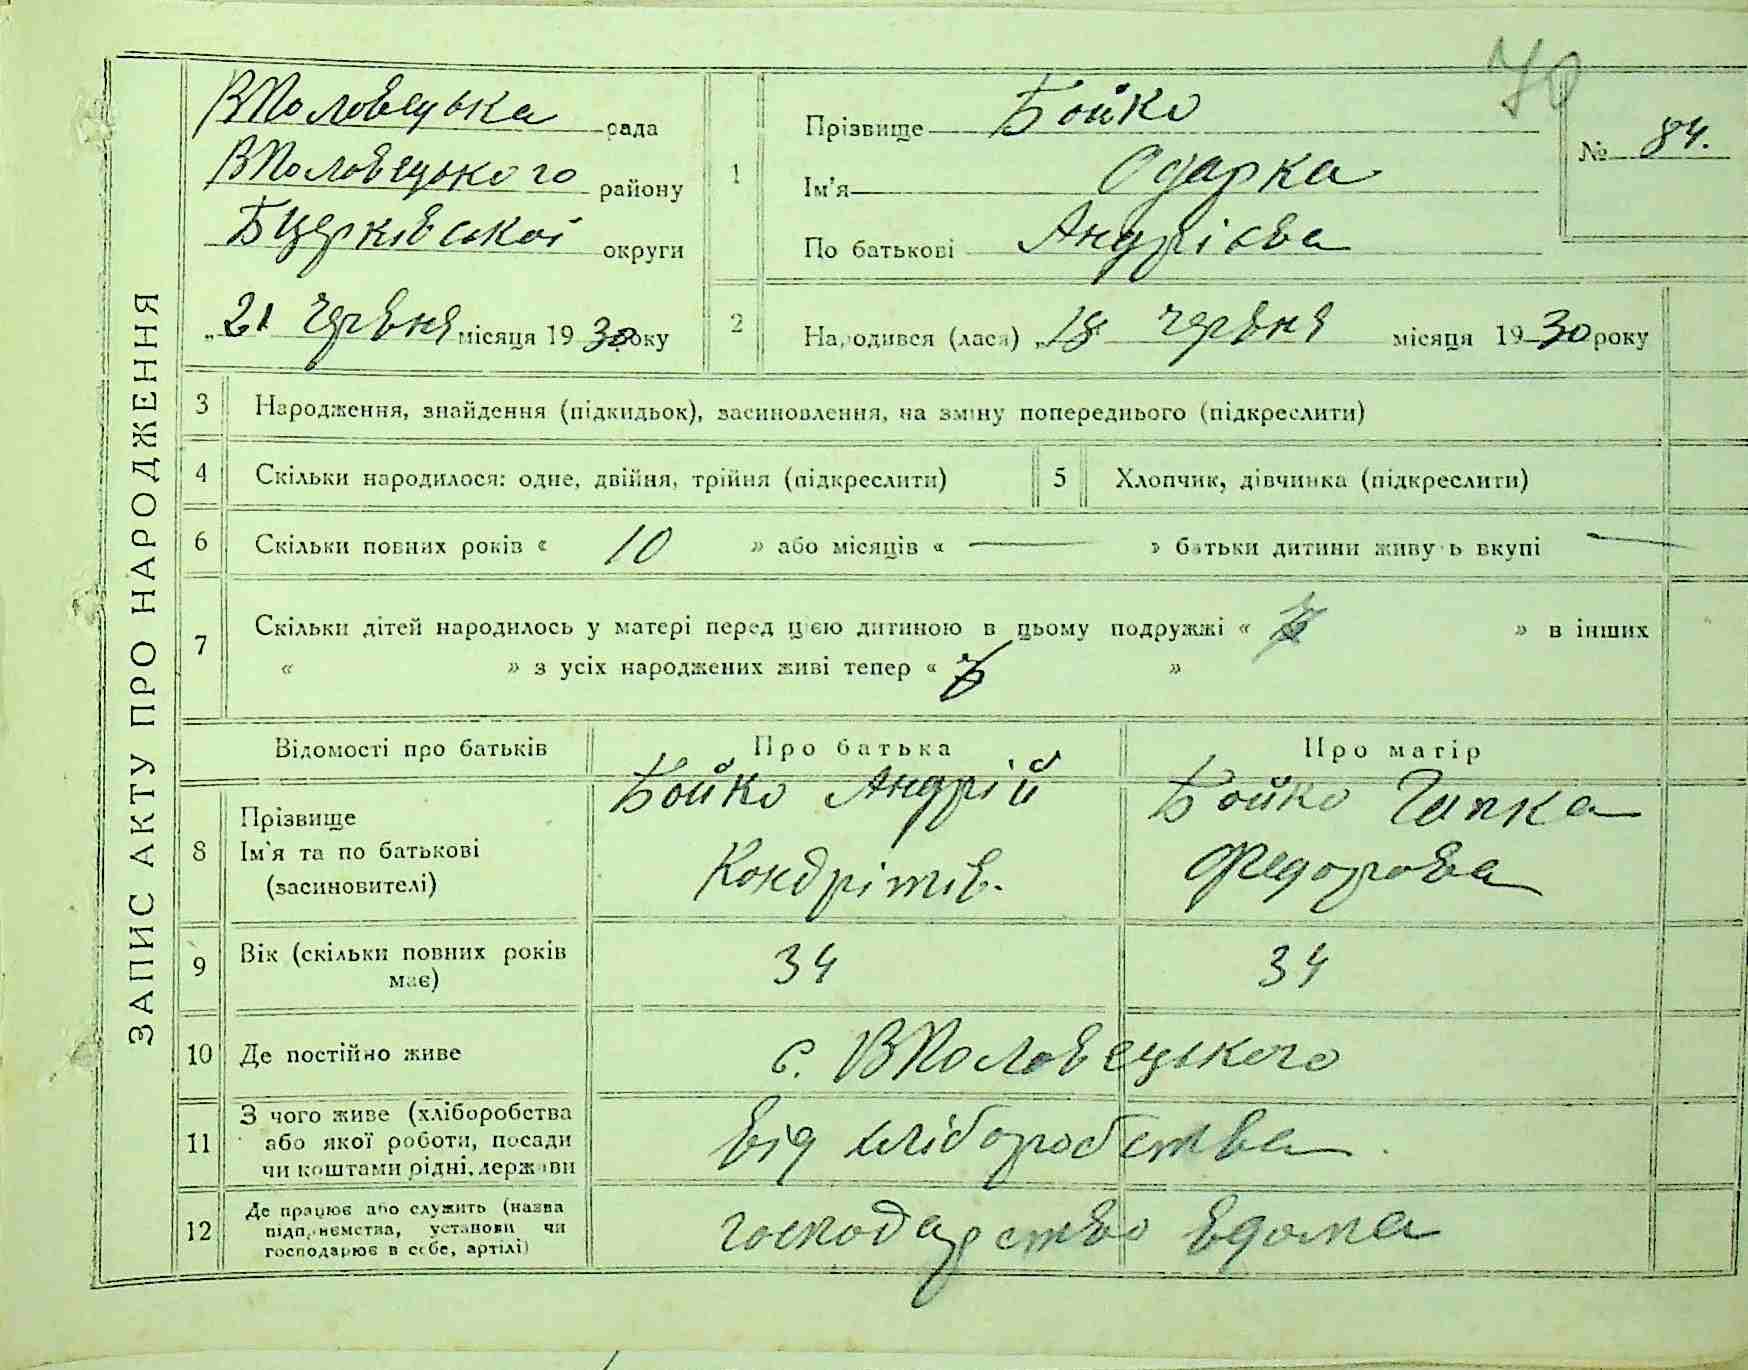 70
ЗАПИС АКТУ ПРО НАРОДЖЕННЯ
ВПоловецька рада
ВПоловецького району
БЦерківської округи
„21 червня місяця 1930 року
1
Прізвище Бойко
Ім’я Одарка
По батькові Андрієва
№ 84.
2
Народився (лася) „18 червня місяця 1930 року
3 Народження, знайдення (підкидьок), засиновлення, на зміну попереднього (підкреслити)
4 Скільки народилося: одне, двійня, трійня (підкреслити) 5 Хлопчик, дівчинка (підкреслити)
6 Скільки повних років « 10 » або місяців « — » батьки дитини живуть вкупі —
7 Скільки дітей народилось у матері перед цією дитиною в цьому подружжі « » в інших
« » з усіх народжених живі тепер « »
Відомості про батьків Про батька Про матір
8 Прізвище Ім’я та по батькові (засиновителі)
Бойко Андрій
Кондратів.
Бойко Гапка
Федорова
9 Вік (скільки повних років має) 34 34
10 Де постійно живе с. ВПоловецького
11 З чого живе (хліборобства або якої роботи, посади чи коштами рідні, держави від хліборобства
12 Де працює або служить (назва підприємства, установи чи господарює в себе, артілі) господарство вдома